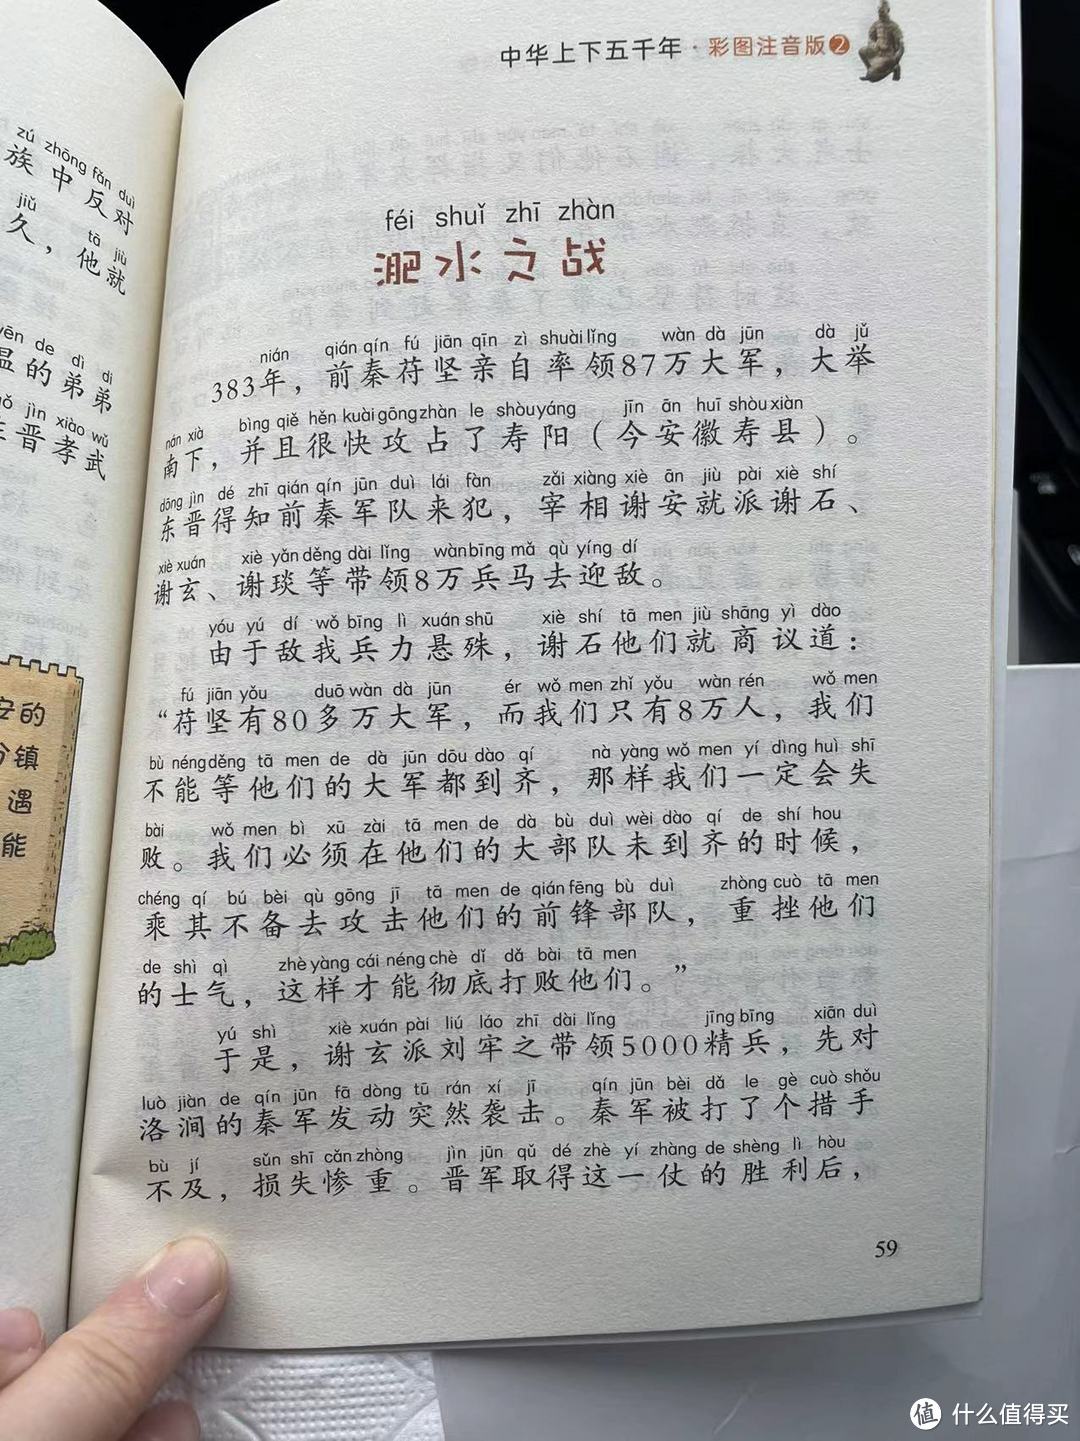 zú zhōng fǎn duì
族中反对
jiǔ tā jiù
久，他就
de dì di
温的弟弟
jìn xiào wǔ
晋孝武
安的
镇
遇
能
中华上下五千年·彩图注音版2
féi shuǐ zhī zhàn
淝水之战
nián qián qín fú jiān qīn zì shuài lǐng wàn dà jūn dà jǔ
383年，前秦苻坚亲自率领87万大军，大举
nán xià bìng qiě hěn kuài gōng zhàn le shòu yáng jīn ān huī shòu xiàn
南下，并且很快攻占了寿阳（今安徽寿县）。
dōng jìn dé zhī qián qín jūn duì lái fàn zǎi xiàng xiè ān jiù pài xiè shí
东晋得知前秦军队来犯，宰相谢安就派谢石、
xiè xuán xiè yǎn děng dài lǐng wàn bīng mǎ qù yíng dí
谢玄、谢琰等带领8万兵马去迎敌。
yóu yú dí wǒ bīng lì xuán shū xiè shí tā men jiù shāng yì dào
由于敌我兵力悬殊，谢石他们就商议道：
fú jiān yǒu duō wàn dà jūn ér wǒ men zhǐ yǒu wàn rén wǒ men
“苻坚有80多万大军，而我们只有8万人，我们
bù néng děng tā men de dà jūn dōu dào qí nà yàng wǒ men yí dìng huì shī
不能等他们的大军都到齐，那样我们一定会失
bài wǒ men bì xū zài tā men de dà bù duì wèi dào qí de shí hou
败。我们必须在他们的大部队未到齐的时候，
chéng qí bú bèi qù gōng jī tā men de qián fēng bù duì zhòng cuò tā men
乘其不备去攻击他们的前锋部队，重挫他们
de shì qì zhè yàng cái néng chè dǐ dǎ bài tā men
的士气，这样才能彻底打败他们。”
yú shì xiè xuán pài liú láo zhī dài lǐng jīng bīng xiān duì
于是，谢玄派刘牢之带领5000精兵，先对
luò jiàn de qín jūn fā dòng tū rán xí jī qín jūn bèi dǎ le gè cuò shǒu
洛涧的秦军发动突然袭击。秦军被打了个措手
bù jí sǔn shī cǎn zhòng jìn jūn qǔ dé zhè yí zhàng de shèng lì hòu
不及，损失惨重。晋军取得这一仗的胜利后，
59
值 什么值得买